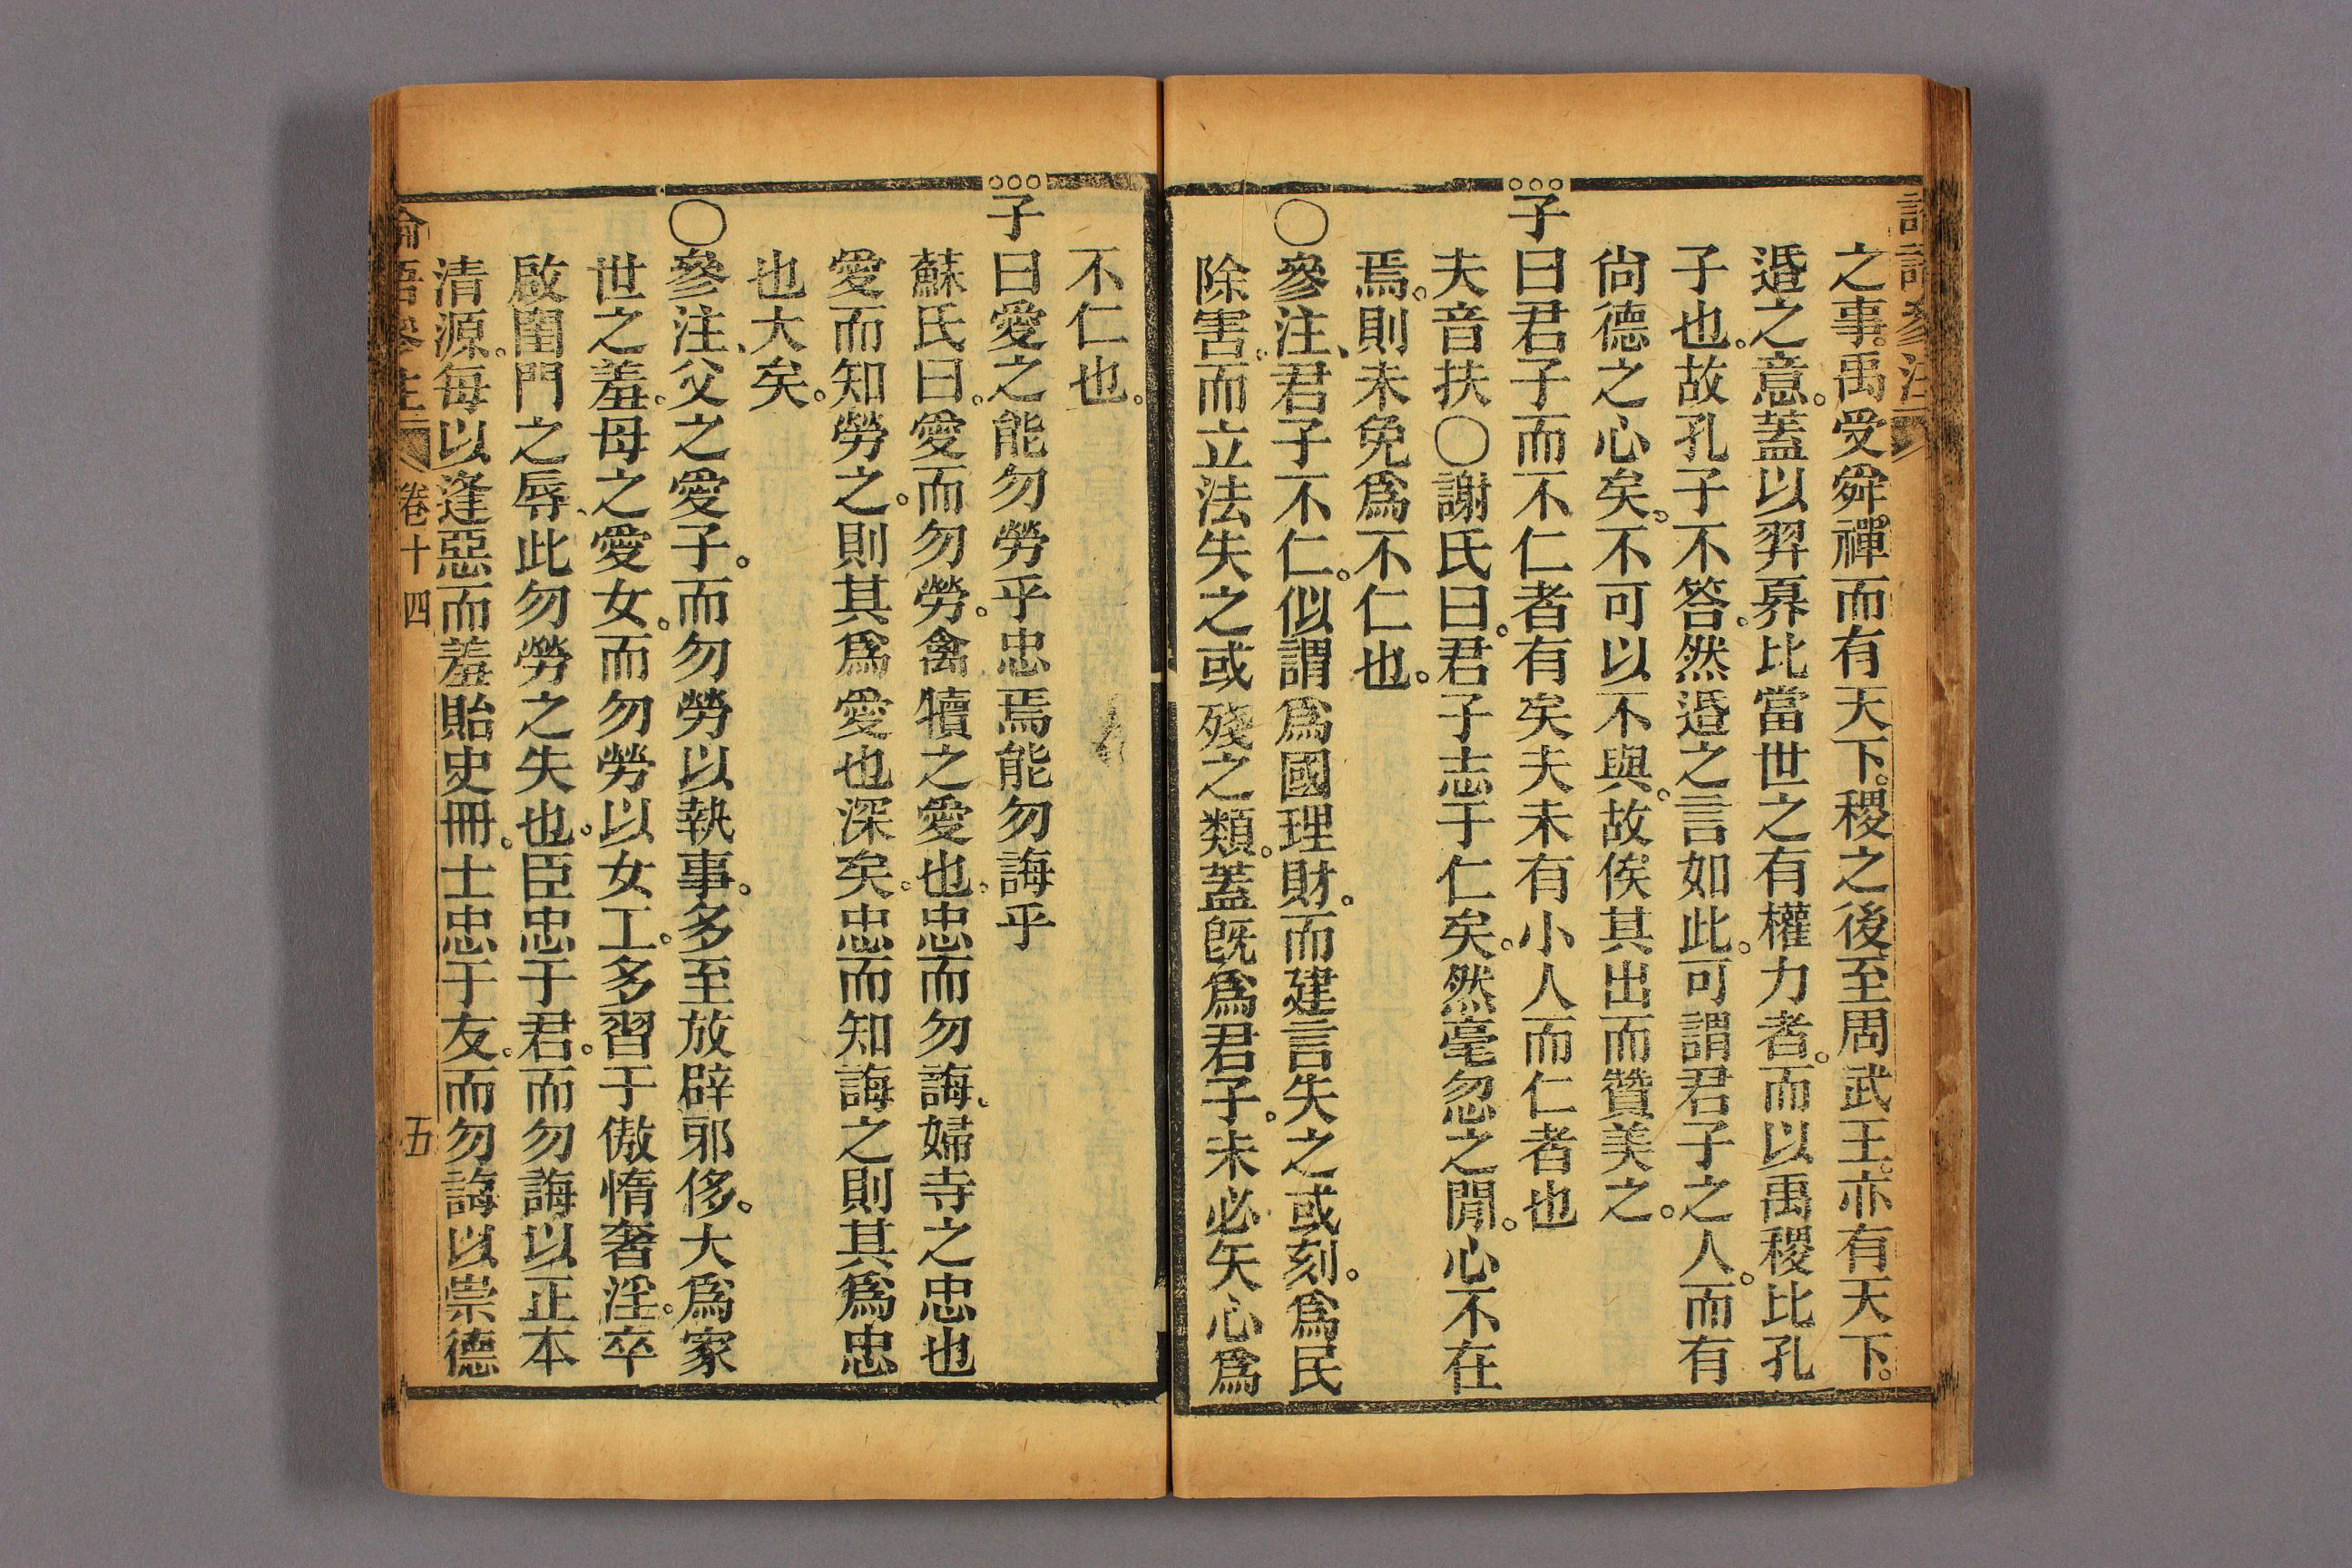 之事。禹受舜禪而有天下。稷之後至周武王。亦有天下。
适之意。蓋以羿奡比當世之有權力者。而以禹稷比孔
子也。故孔子不答。然适之言如此。可謂君子之人。而有
尙德之心矣。不可以不與。故俟其出而贊美之。
子曰君子而不仁者有矣夫未有小人而仁者也
夫音扶〇謝氏曰。君子志于仁矣。然毫忽之閒。心不在
焉。則未免爲不仁也。
〇參注、君子不仁。似謂爲國理財。而建言失之或刻。爲民
除害。而立法失之或殘之類。蓋旣爲君子。未必矢心爲
不仁也。
子曰愛之能勿勞乎忠焉能勿誨乎
蘇氏曰。愛而勿勞。禽犢之愛也。忠而勿誨、婦寺之忠也
愛而知勞之。則其爲愛也深矣。忠而知誨之則其爲忠
也大矣。
〇參注、父之愛子。而勿勞以執事。多至放辟邪侈。大爲家
世之羞。母之愛女。而勿勞以女工。多習于傲惰奢淫。卒
啟閨門之辱、此勿勞之失也。臣忠于君。而勿誨以正本
清源。每以逢惡而羞貽史冊。士忠于友。而勿誨以崇德
論語參注 卷十四 五